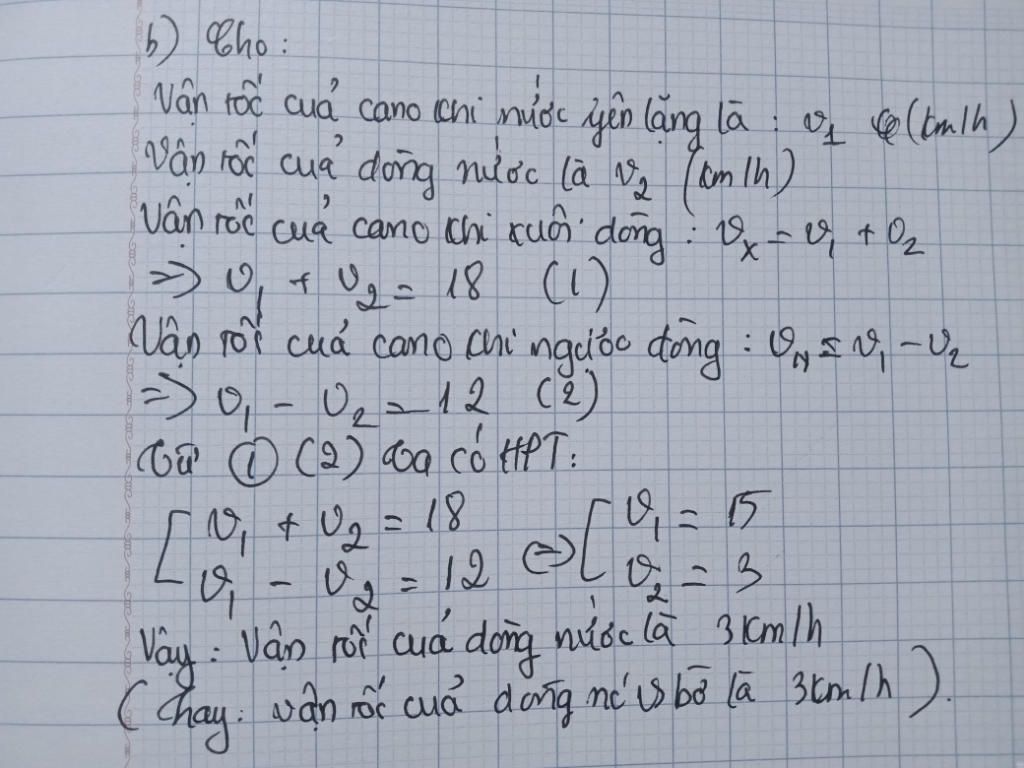 b) Cho:
Vận tốc cuả cano khi nước yên lặng là : v₁ (km/h)
Vận tốc cuả dòng nước là v₂ (km/h)
Vận tốc cuả cano khi xuôi dòng : vₓ = v₁ + v₂
=> v₁ + v₂ = 18 (1)
Vận tốc cuả cano khi ngược dòng : v_N = v₁ - v₂
=> v₁ - v₂ = 12 (2)
Từ (1) (2) ta có HPT:
[ v₁ + v₂ = 18 <=> [ v₁ = 15
v₁ - v₂ = 12 v₂ = 3
Vậy : Vận tốc cuả dòng nước là 3km/h
( hay: vận tốc cuả dòng nc vs bờ là 3km/h ).